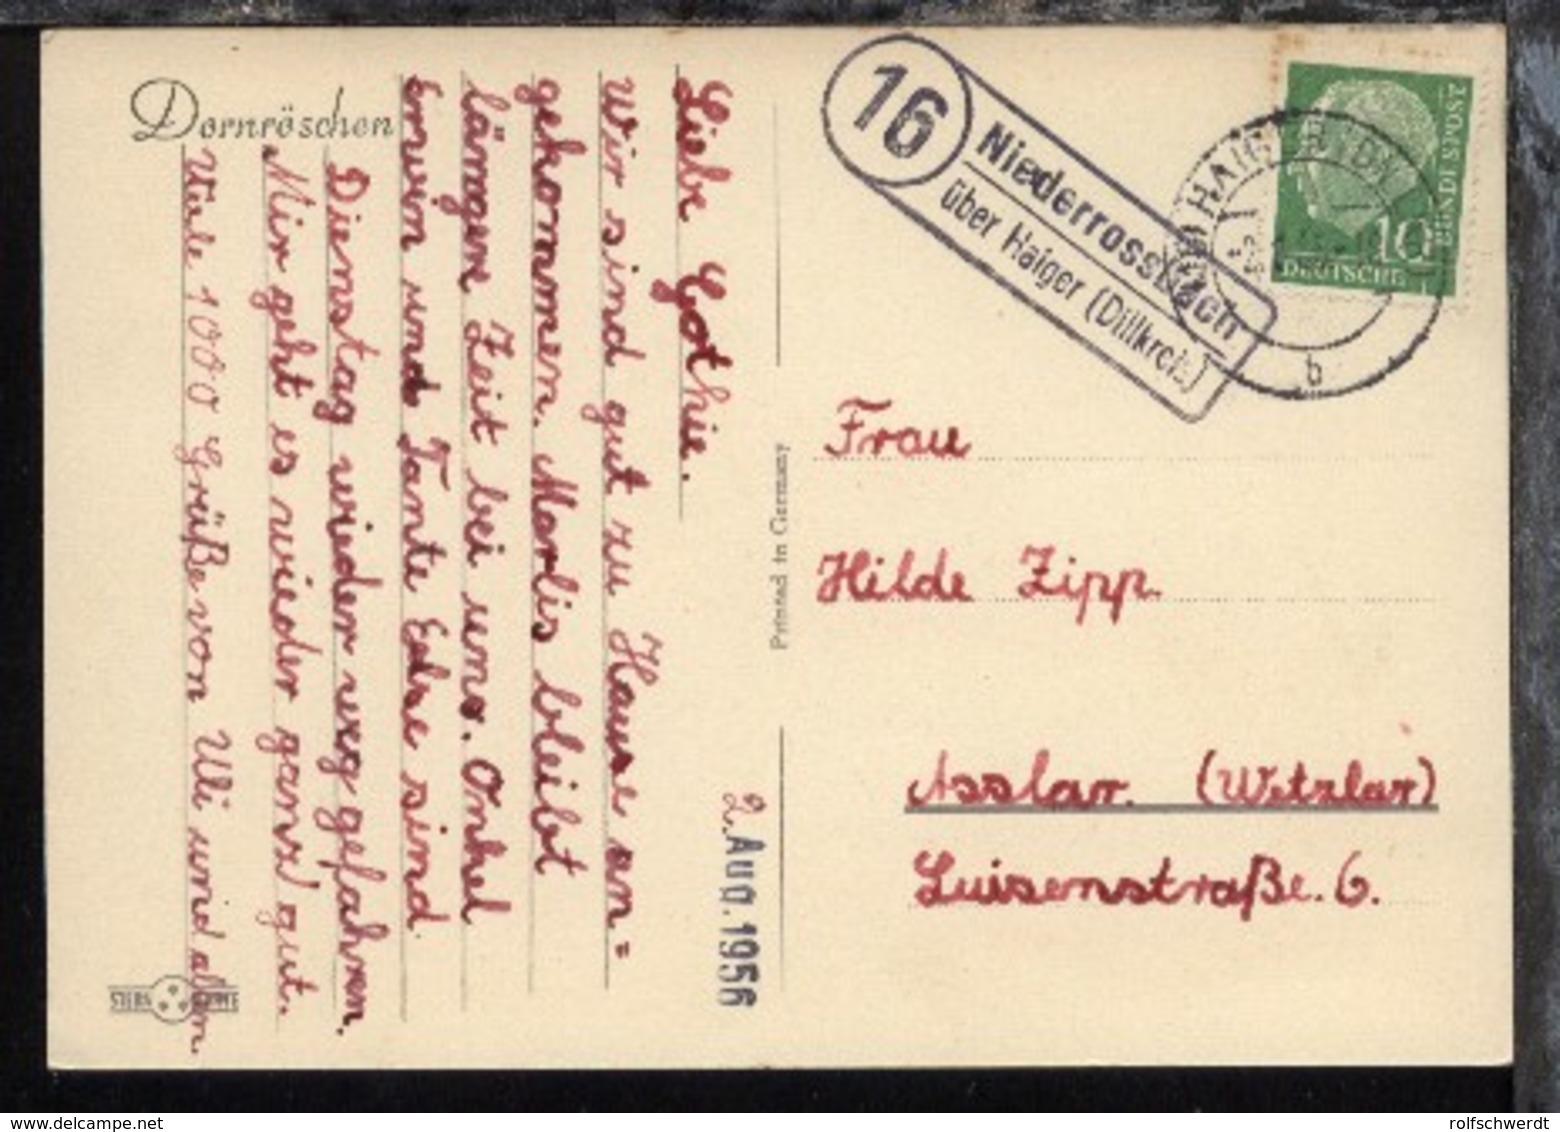 Dornröschen
Liebe Gothie.
Wir sind gut zu Hause an=
gekommen. Marlis bleibt
längere Zeit bei uns. Onkel
Erwin und Tante Else sind
Dienstag wieder weggefahren.
Mir geht es wieder ganz gut.
Viele 1000 Grüße von Uli und allen.
2. Aug. 1956
Printed in Germany
16
Niederrossbach
über Haiger (Dillkreis)
HAIGER
b
10
DEUTSCHE
BUNDESPOST
Frau
Hilde Zipp.
Asslar. (Wetzlar)
Luisenstraße. 6.
delcampe.net
rolfschwerdt